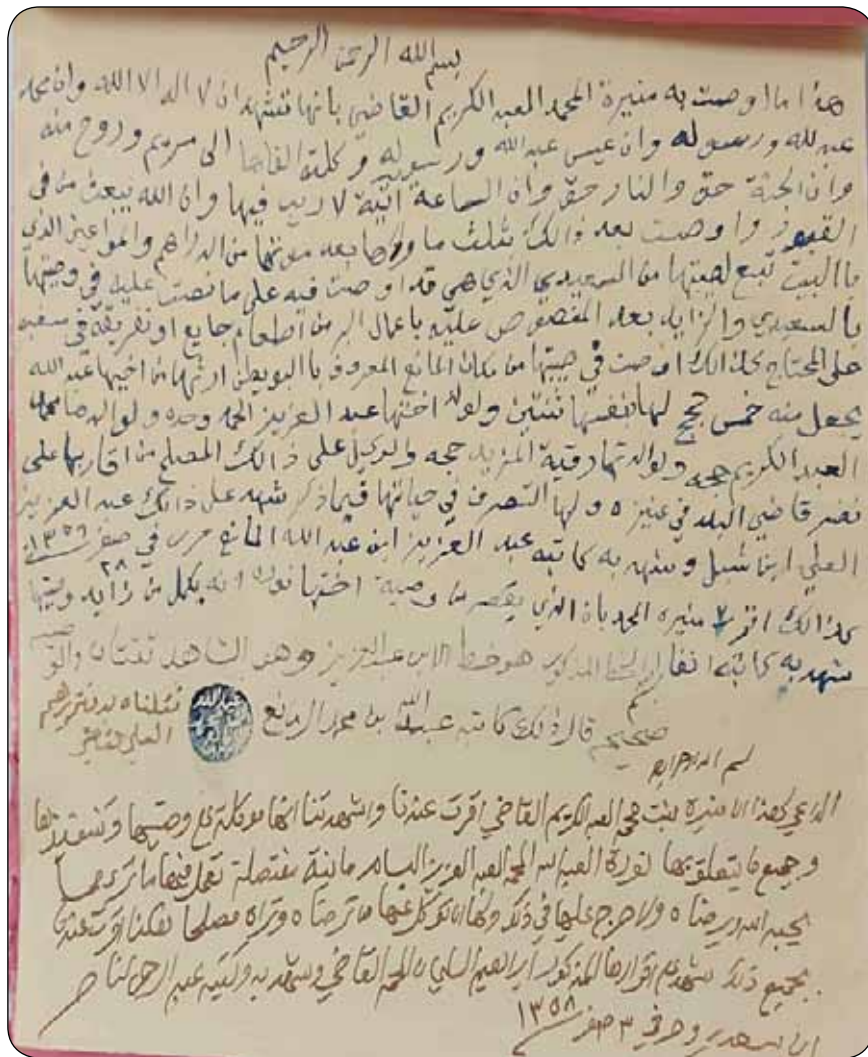 بسم الله الرحمن الرحيم
هذا ما اوصت به منيرة المحمد العبد الكريم القاضي بانها تشهد ان لا اله الا الله وان محمد
عبد لله ورسوله وان عيسى عبد الله ورسوله وكلمته القاها الى مريم وروح منه
وان الجنة حق والنار حق وان الساعة اتية لا ريب فيها وان الله يبعث من في
القبور واوصت بعد ذالك بثلث ما وراها بعد موتها من الدراهم والمواعين الذي
باالبيت تبع لصيبتها من السعيدي الذي هي قد اوصت فيه على ما نصت عليه في وصيتها
بالسعيدي والزايد بعد المنصوص عليه باعمال البر من اطعام جايع او تفريقه في سغبه
على المحتاج كذالك اوصت في صيبتها من مكان المانع المعروف باالبويطن ارثها من اخيها عبد الله
يجعل منه خمس حجج لها نفسها ثنتين ولولد اختها عبد العزيز الحمد وحده ولوالدها محمد
العبد الكريم حجه ولوالدتها رقية المزيد حجه والوكيل على ذالك المصلح من اقاربها على
نضر قاضي البلد في عنيزه ولها التصرف في حياتها فيما ذكر شهد على ذالك عبد العزيز
العلي ابن شبل وشهد به كاتبه عبد العزيز ابن عبد الله المانع حرر في صفر ١٣٥٦
٢٨
كذالك اقرت منيره المحمد بان الذي يقصر من وصية اختها نوره انه يكمل من زايد وصيتها
شهد به كاتبه الخط المذكور هو خط الابن عبد العزيز وهو والشاهد ثقتان
صحيح قال ذلك كاتبه عبد الله بن محمد المانع
نقلناه بدفتر
بسم الله الرحمن الرحيم
الداعي لهذا ان منيرة بنت محمد العبد الكريم القاضي اقرت عندنا واشهدتنا انها موكلة على وصيتها وتنفيذها
وجميع ما يتعلق بها نورة العبد الله المحمد العبد العزيز البسام تعمل فيها ما تراه مما
يحبه الله ويرضاه ولا حرج عليها في ذلك ولها ان توكل عنها من ترضاه وتراه مصلحا هكذا اقرت عندي
بجميع ذلك شهد على اقرارها المذكور ابراهيم السليمان المحمد القاضي وشهد به وكتبه عبد الرحمن الناصر
ابن سعدي وحرر في ٣ صفر ١٣٥٨